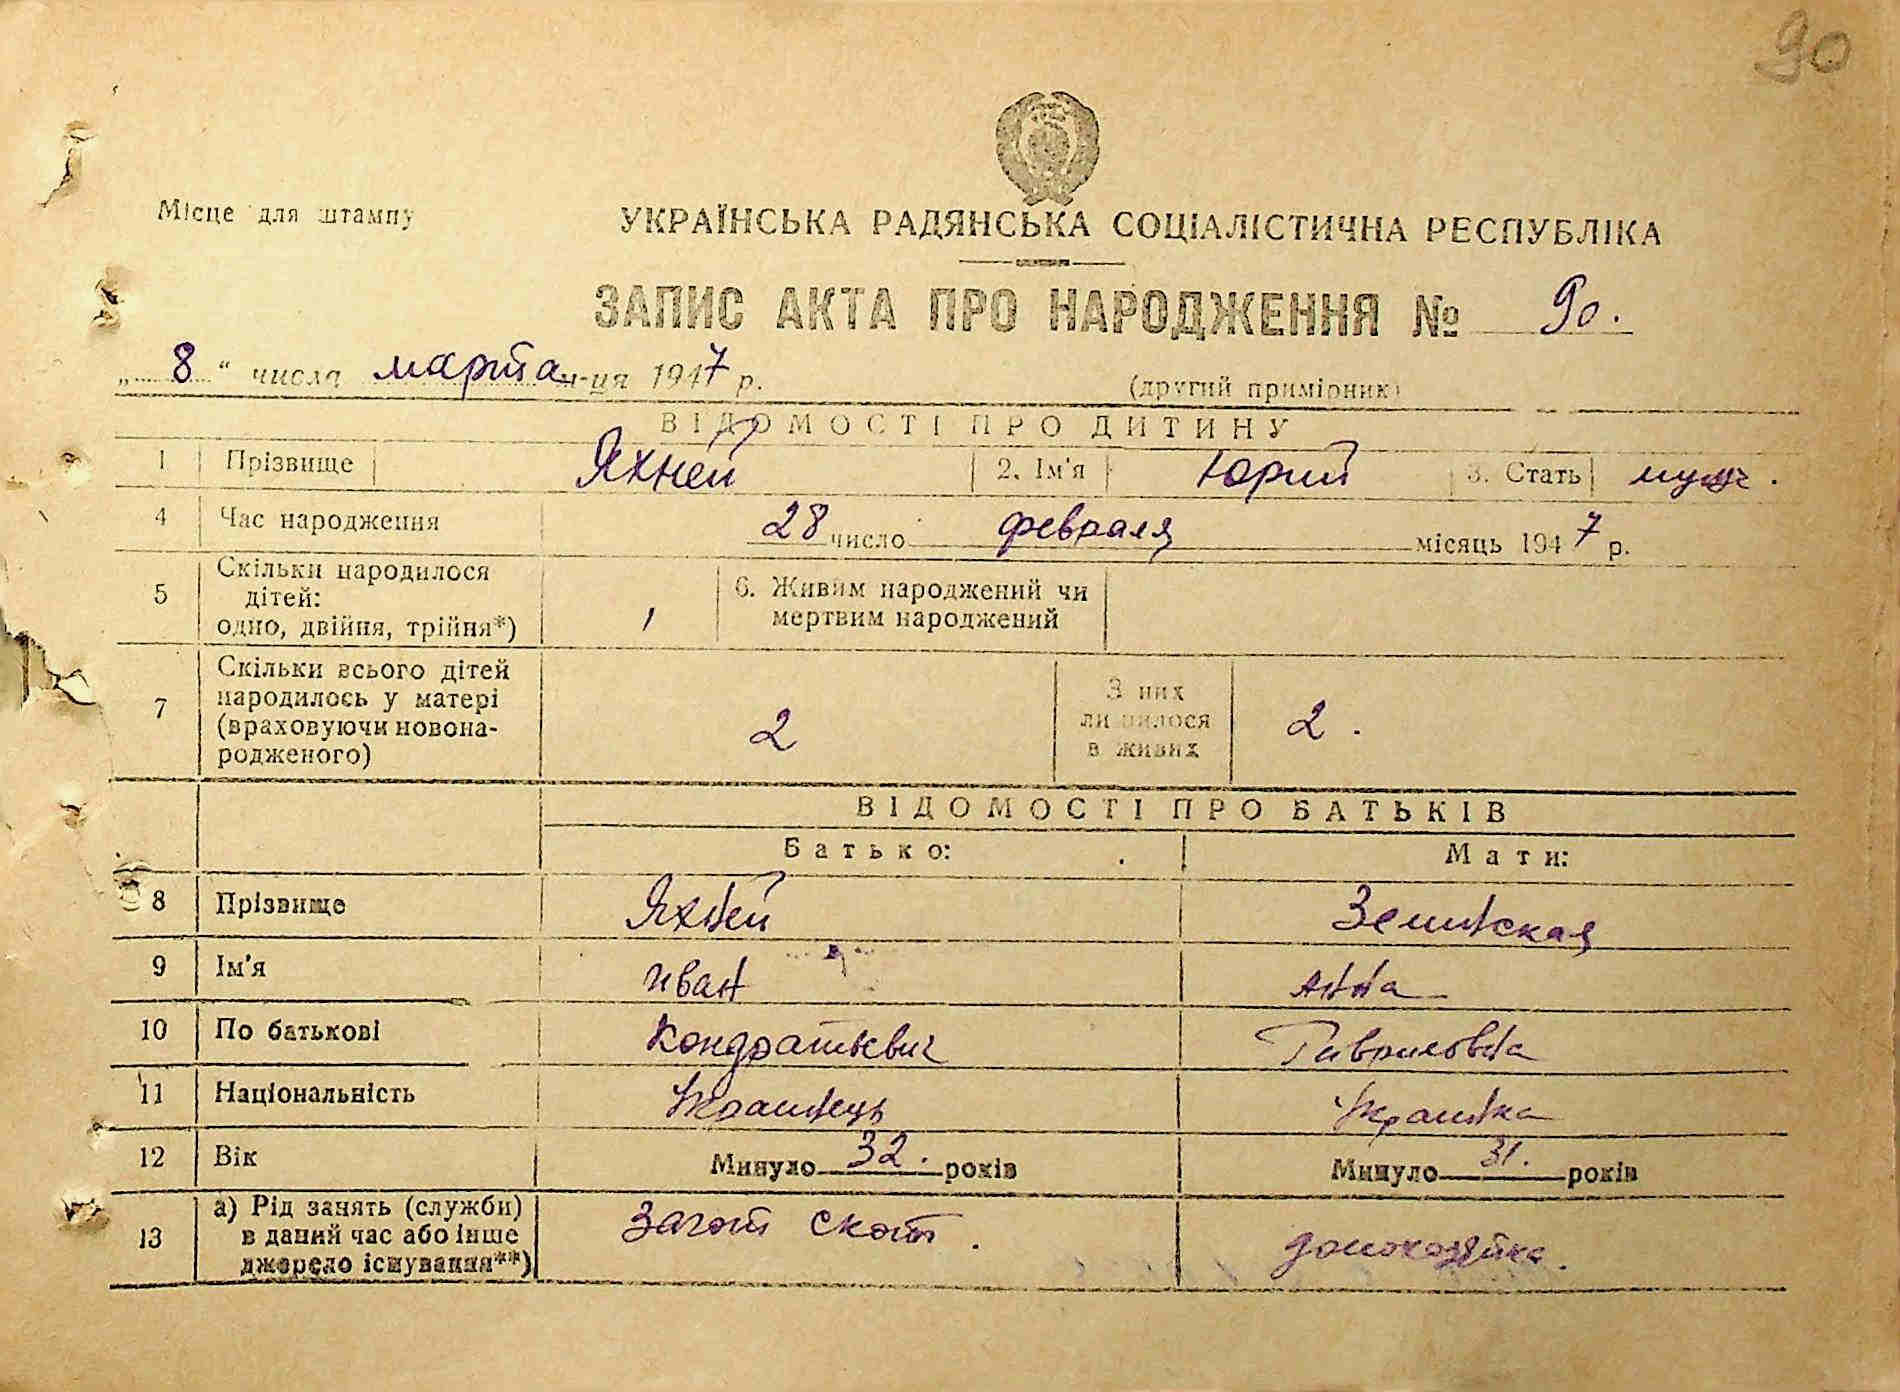 90
Місце для штампу
УКРАЇНСЬКА РАДЯНСЬКА СОЦІАЛІСТИЧНА РЕСПУБЛІКА
ЗАПИС АКТА ПРО НАРОДЖЕННЯ № 90.
„ 8 “ числа марта м-ця 1947 р.
(другий примірник)
ВІДОМОСТІ ПРО ДИТИНУ
1 Прізвище Яхней 2. Ім'я Юрий 3. Стать муж.
4 Час народження 28 число февраля місяць 1947 р.
5 Скільки народилося дітей: одно, двійня, трійня*) 1 6. Живим народжений чи мертвим народжений
7 Скільки всього дітей народилось у матері (враховуючи новонародженого) 2 З них лишилося в живих 2.
ВІДОМОСТІ ПРО БАТЬКІВ
Батько: Мати:
8 Прізвище Яхней
9 Ім'я Иван Анна
10 По батькові Кондратьевич Гавриловна
11 Національність Украинець Украинка
12 Вік Минуло 32. років Минуло 31. років
13 а) Рід занять (служби) в даний час або інше джерело існування**) Загот скот. домохозяйка.